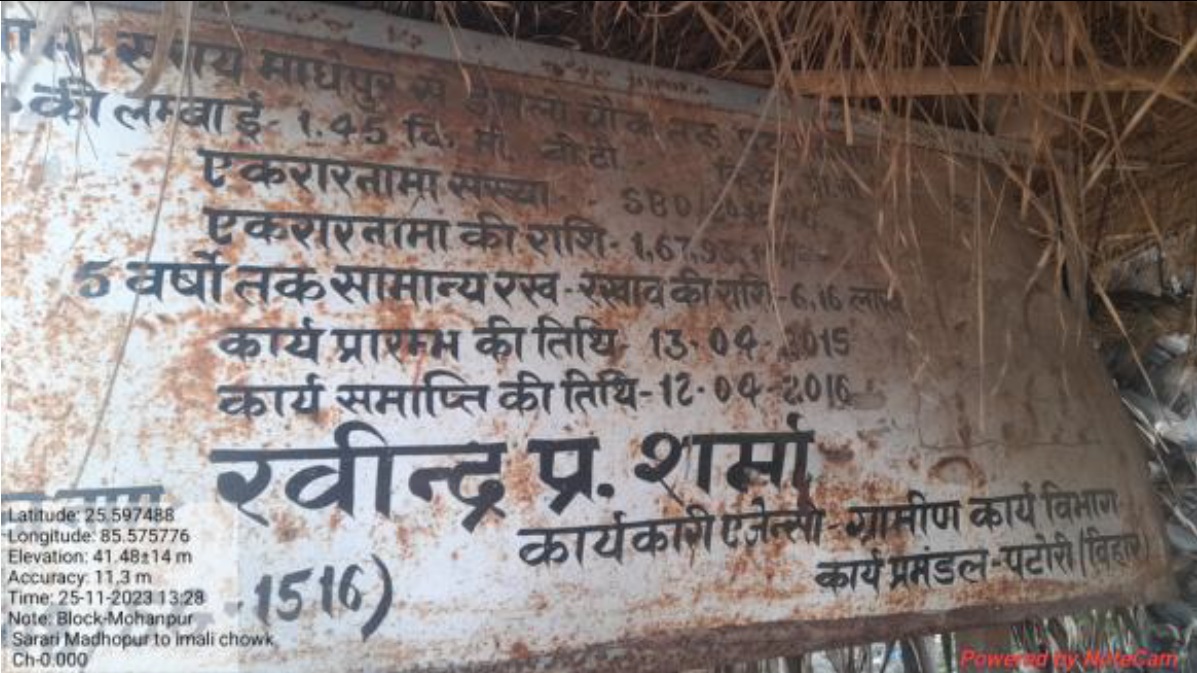 माधेपुर से चौक तक
की लम्बाई- 1.45 कि. मी.
एकरारनामा सख्या
SBD/
एकरारनामा की राशि- 1,67,95,
5 वर्षो तक सामान्य रख-रखाव की राशि-6,16 लाख
कार्य प्रारम्भ की तिथि- 13-04-2015
कार्य समाप्ति की तिथि-12-04-2016
रवीन्द्र प्र. शर्मा
कार्यकारी एजेन्सी-ग्रामीण कार्य विभाग
कार्य प्रमंडल-पटोरी (बिहार)
-1516)
Latitude: 25.597488
Longitude: 85.575776
Elevation: 41.48±14 m
Accuracy: 11,3 m
Time: 25-11-2023 13:28
Note: Block-Mohanpur
Sarari Madhopur to imali chowk
Ch-0.000
Powered by NoteCam